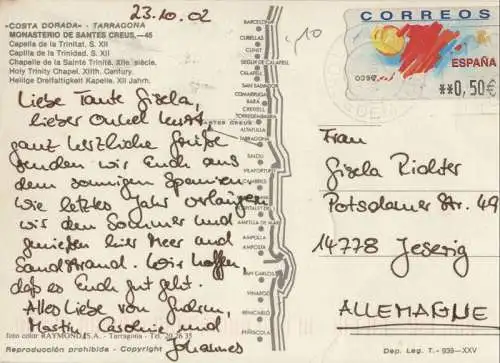 23.10.02
«COSTA DORADA» - TARRAGONA
MONASTERIO DE SANTES CREUS.—45
Capella de la Trinitat. S. XII
Capilla de la Trinidad. S. XII
Chapelle de la Sainte Trinité. XIIe siècle.
Holy Trinity Chapel. XIIth. Century.
Heilige Dreifaltigkeit Kapelle. XII Jahrh.
Liebe Tante Gisela,
lieber Onkel
ganz herzliche Grüße
senden wir Euch aus
dem sonnigen Spanien
Wie letztes Jahr verlängern
wir den Sommer und
genießen hier Meer und
Sandstrand. Wir hoffen,
daß es Euch gut geht.
Alles Liebe von Gudrun,
Martin Caroline und
Johannes
foto color RAYMOND S.A. - Tarragona - Tel.
Reproducción prohibida - Copyright
BARCELONA
CUBELLAS
CUNIT
SEGUR DE CALAFELL
CALAFELL
SAN SALVADOR
COMARRUGA
BARA
CREIXELL
TORREDEMBARRA
SANTES CREUS
ALTAFULLA
TARRAGONA
SALOU
VILAFORTUNY
CAMBRILS
HOSPITALET
AMETLLA DE MAR
AMPOLLA
AMPOSTA
SAN CARLOS
VINAROZ
BENICARLO
PEÑISCOLA
,10
CORREOS
ESPAÑA
**0,50€
Frau
Gisela Richter
Potsdamer Str. 49
14778 Jeserig
ALLEMAGNE
Dep. Leg. T. - 939—XXV